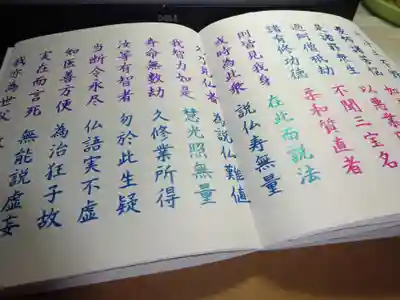 DELL
是諸罪衆生 以悪業因
過阿僧祇劫 不聞三宝名
諸有修功徳 柔和質直者
則皆見我身 在此而説法
或時為此衆 説仏寿無量
見仏者 為説仏難値
我智力如是 慧光照無量
寿命無数劫 久修業所得
汝等有智者 勿於此生疑
当断令永尽 仏語実不虚
如医善方便 為治狂子故
実在而言死 無能説虚妄
我亦為世父